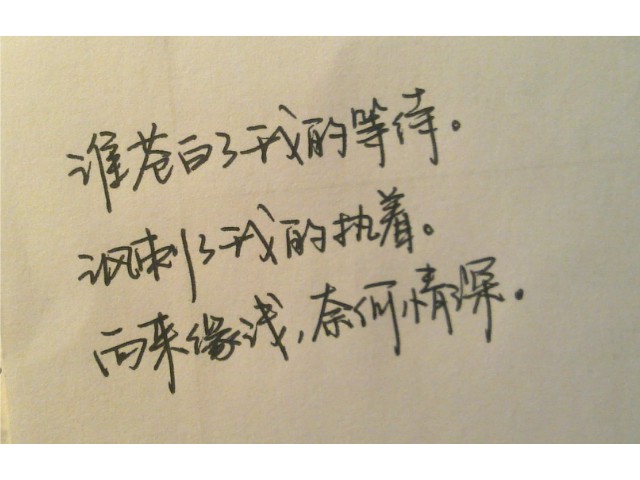 谁苍白了我的等待。
讽刺了我的执着。
向来缘浅,奈何情深。